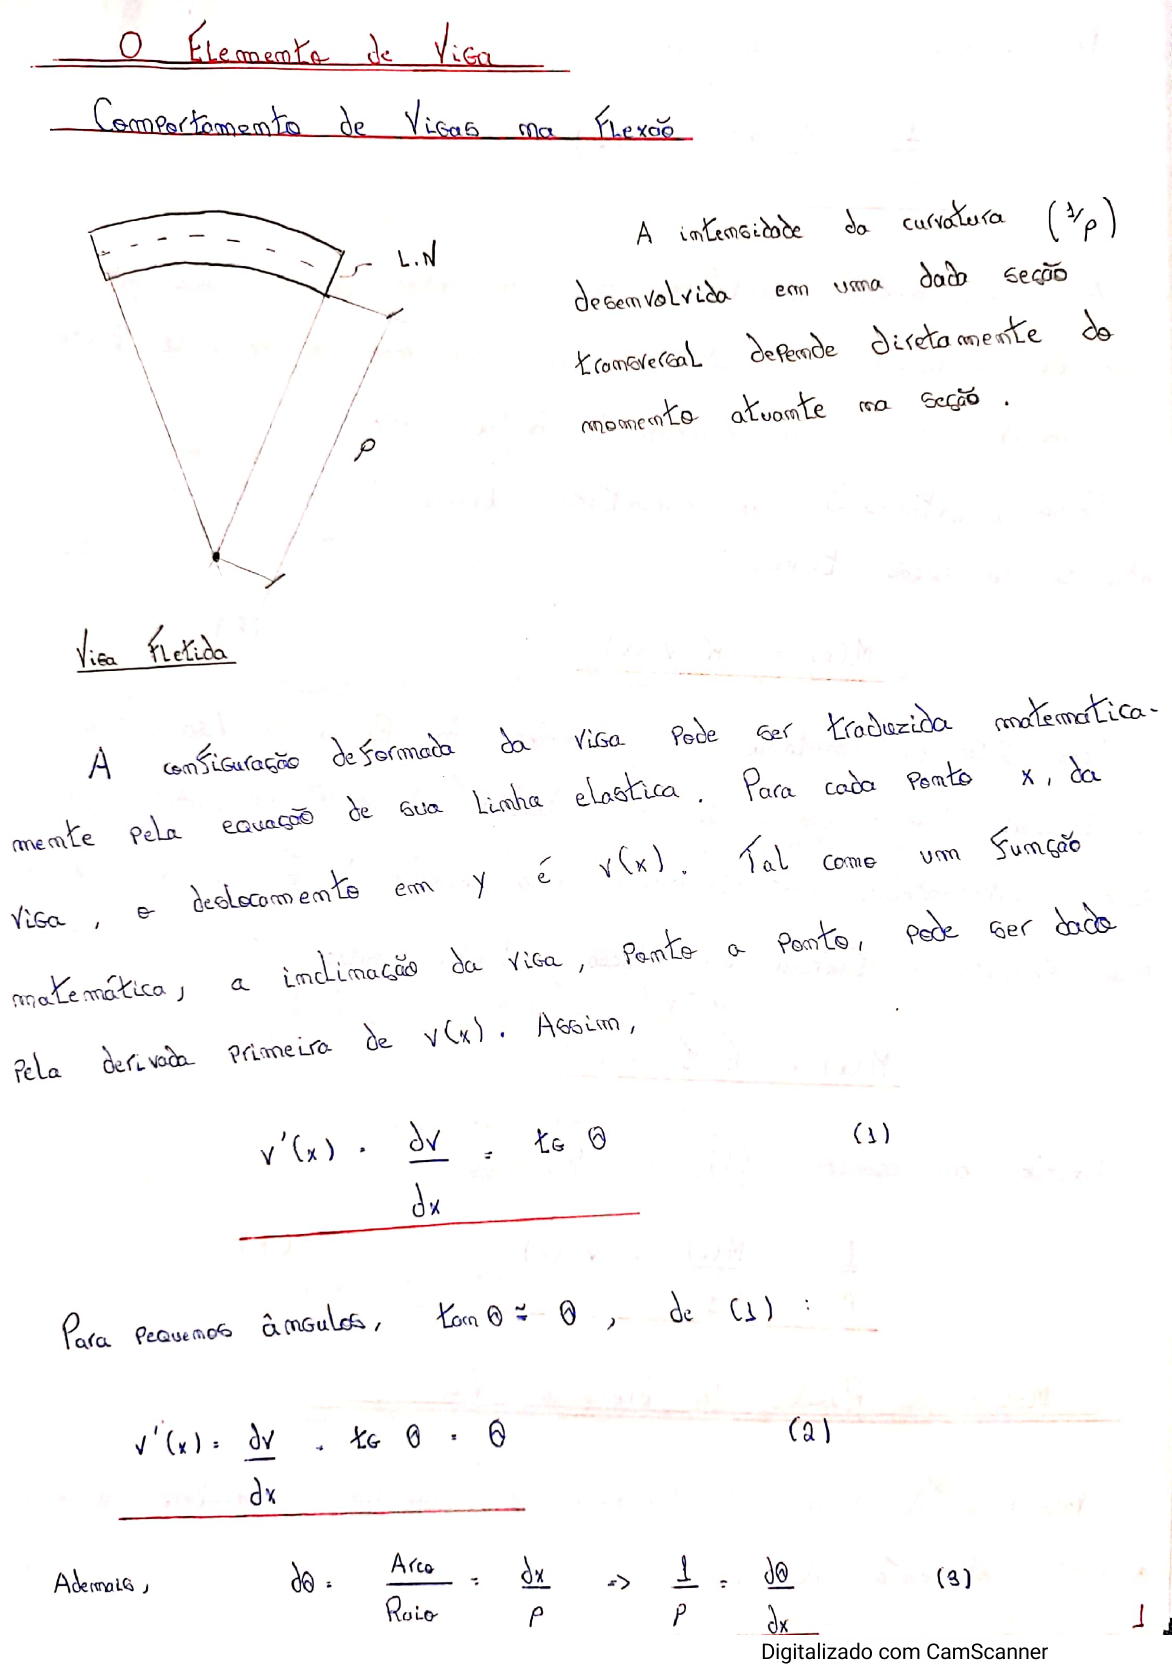 O Elemento de Viga
Comportamento de Vigas na Flexão
A intensidade da curvatura (1/ρ)
desenvolvida em uma dada seção
transversal depende diretamente do
momento atuante na seção.
L.N
ρ
Viga Fletida
A configuração deformada da viga pode ser traduzida matematica-
mente pela equação de sua linha elastica. Para cada ponto x, da
viga, o deslocamento em y é v(x). Tal como um função
matemática, a inclinação da viga, ponto a ponto, pode ser dada
pela derivada primeira de v(x). Assim,
v'(x) = dv/dx = tg θ (1)
Para pequenos ângulos, tan θ ≈ θ, de (1):
v'(x) = dv/dx = tg θ = θ (2)
Ademais, dθ = Arco/Raio = dx/ρ => 1/ρ = dθ/dx (3)
1
Digitalizado com CamScanner